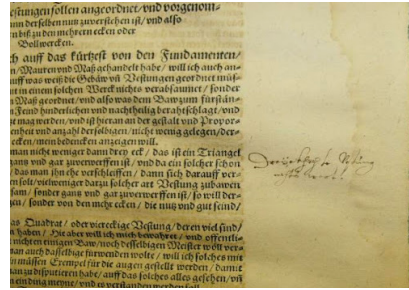 estungen sollen angeordnet / und vorgenom-
nn derselben nun zuverstehen ist / und also
en biß zu den mehrern ecken oder
Bollwercken.
ch auff das kürtzest von den Fundamenten /
n / Mauren und Maß gehandelt habe / will ich auch an-
uff was weiß die Gebäw vñ Vestungen geordnet müs-
t in einem solchen Werck nichts verabsaumet / sonder
n Maß geordnet / und also was dem Baw zum fürstän-
Feind hinderlichen und nachtheilig berahtschlagt / und
t mag werden / und ist hieran an der gestalt und Propor-
enheit und anzahl derselbigen / nicht wenig gelegen / der-
ecken / mein bedencken anzeigen will.
man nicht weniger dann drey eck / das ist ein Triangel
gantz und gar zuverwerffen ist / und da ein solcher schon
das man ihn ehe verschleiffen / dann sich darauff ver-
en solt / vielweniger darzu solcher art Vestung zubawen
sam / sonder gantz und gar zuverwerffen ist / so will der-
gen / sonder von den mehr ecken / die nutz und gut seind /
as Quadrat / oder viereckige Vestung / deren viel sind /
n haben / Hie aber will ich mich bewahret / und offentli-
nichten einigen Baw / noch desselbigen Meister wöll ver-
an auch dasselbige fürwenden wolte / will ich solches mit
n müssen Exempel für die augen gestellt werden / damit
an zu disputieren habe / auff das solches alles gesehen / vñ
ein ding meyne / und zu verstanden werden soll